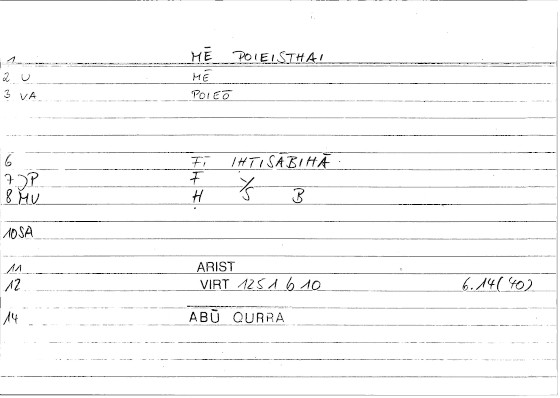 1 MĒ POIEISTHAI
2 U MĒ
3 VA POIEŌ
6 FĪ IḤTISĀBIHĀ
7 P F
8 MU Ḥ Y/S B
10 SA
11 ARIST
12 VIRT 1251 b 10 6.14(40)
14 ABŪ QURRA